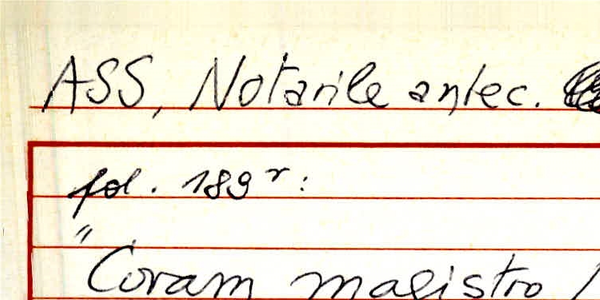 ASS, Notarile antec.
fol. 189r:
"Coram magistro